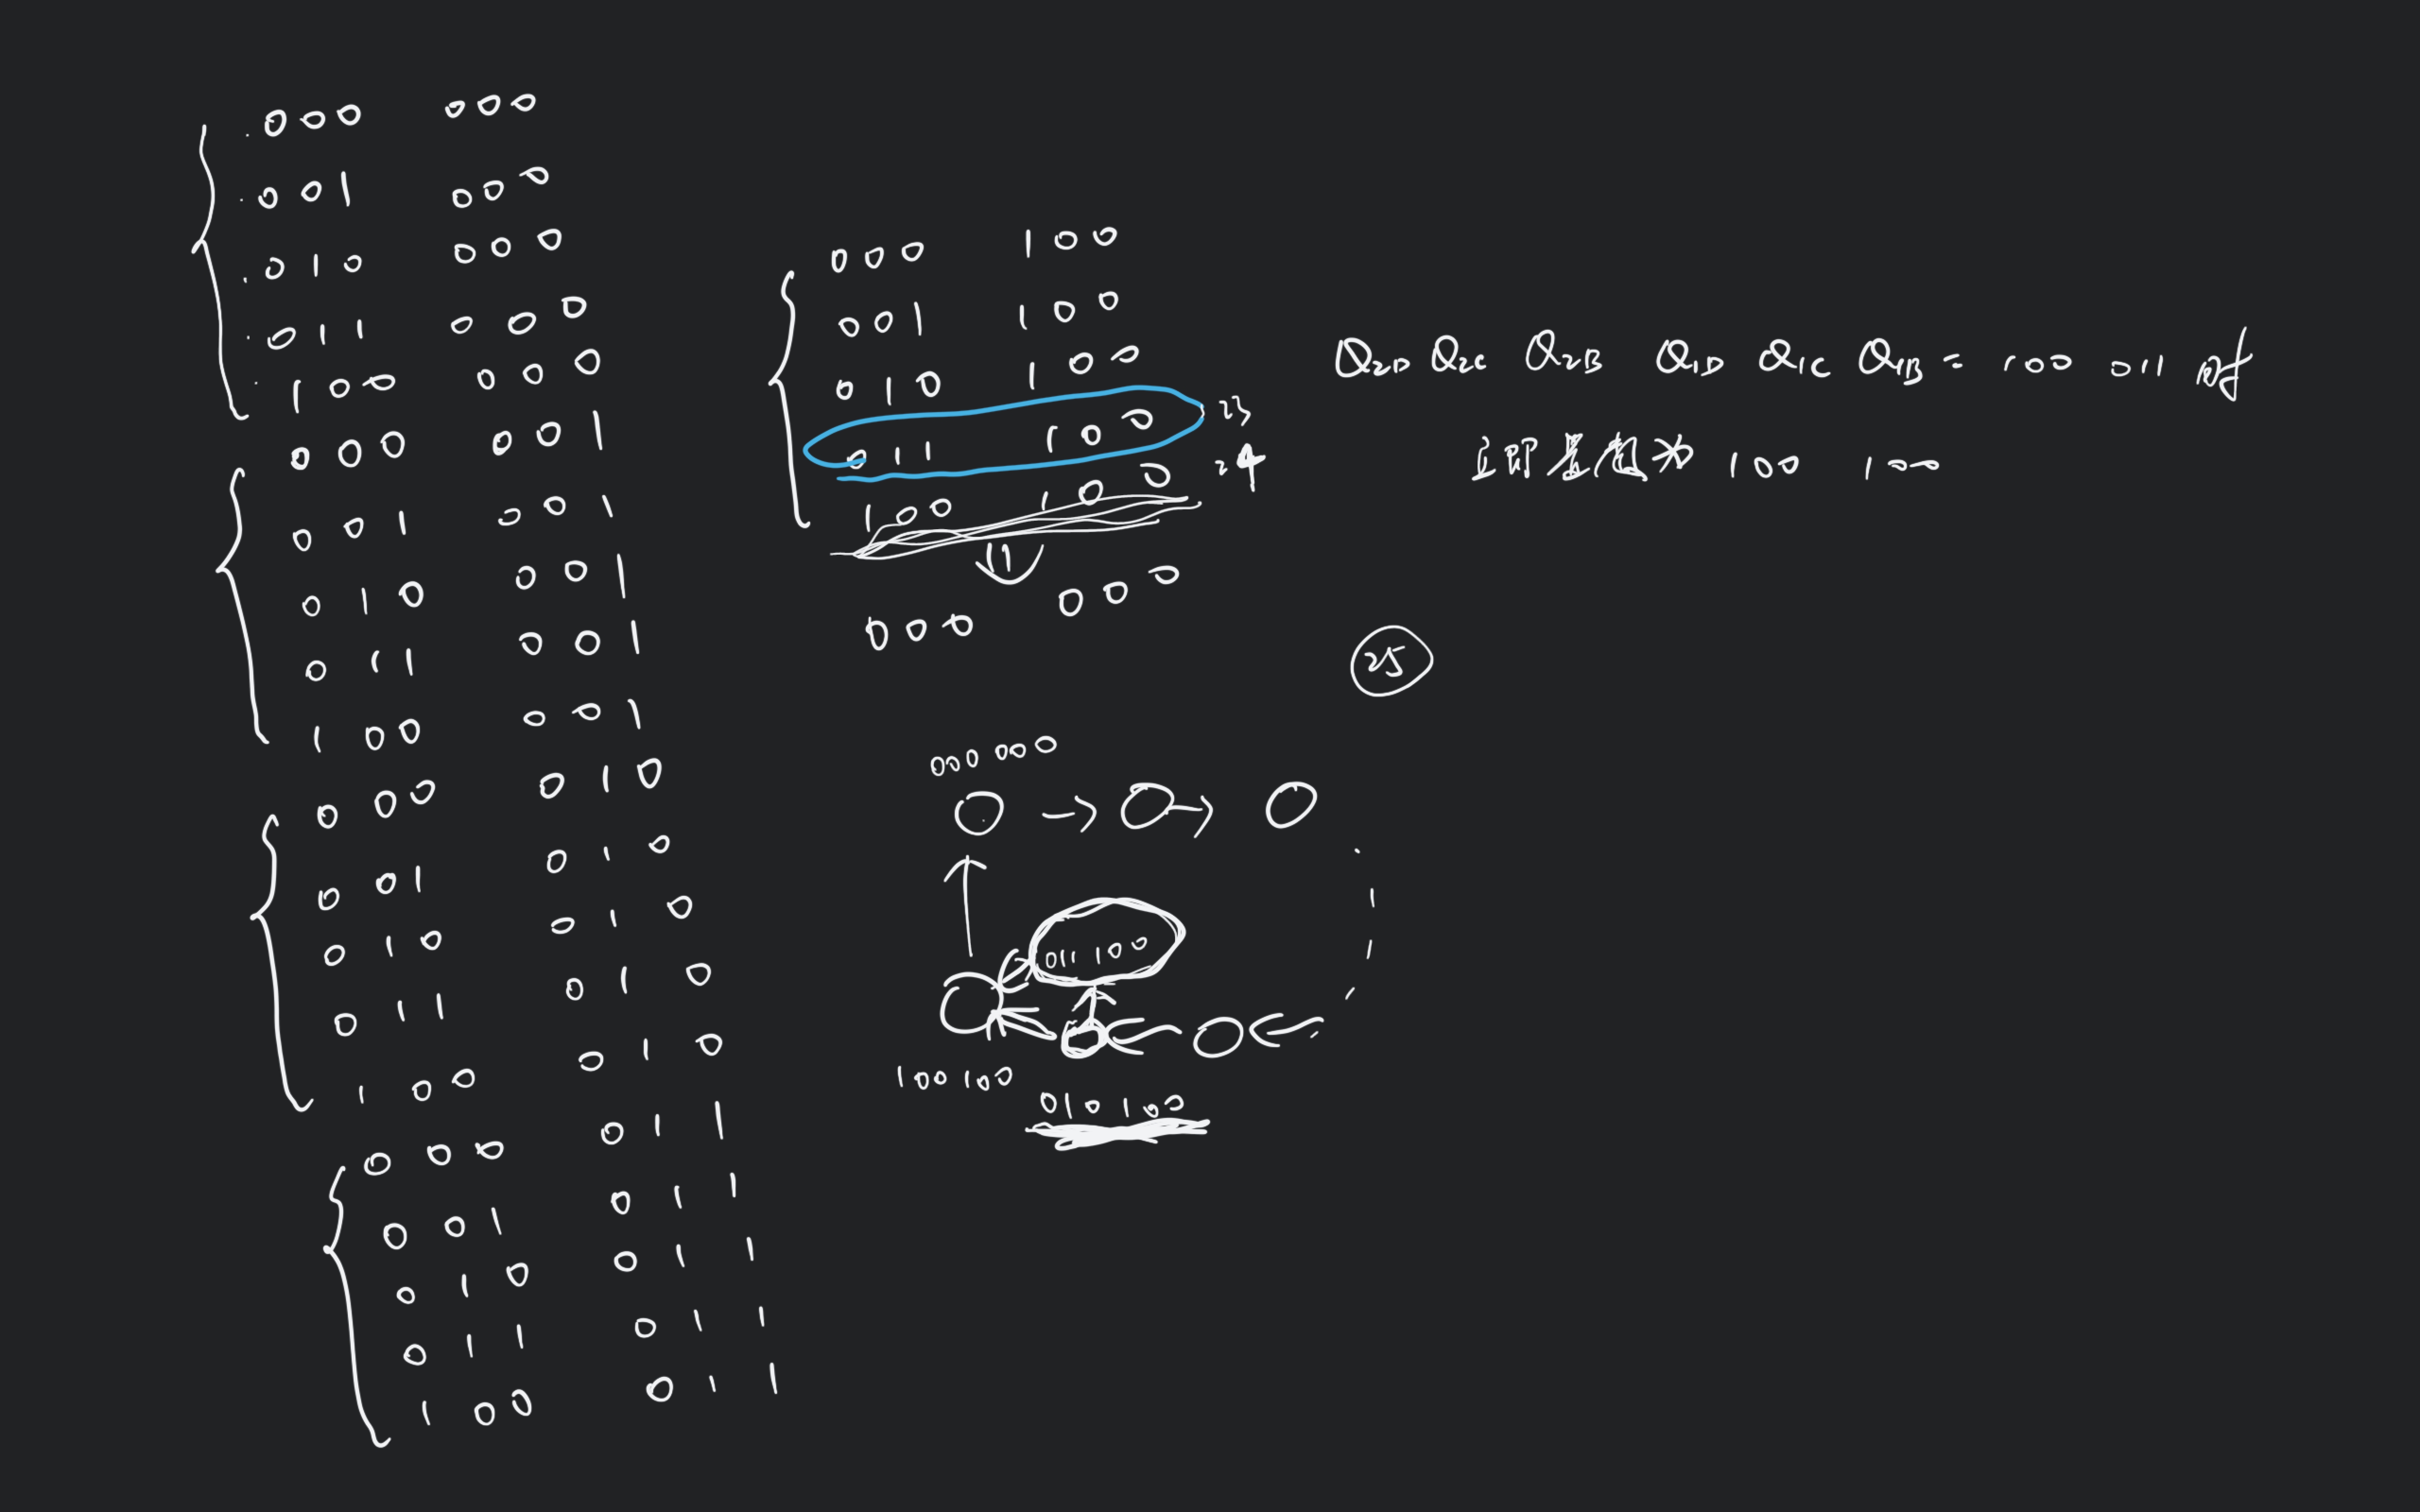 000 000
001 000
010 000
011 000
100 000
000 001
001 001
010 001
011 001
100 001
000 010
001 010
010 010
011 010
100 010
000 011
001 011
010 011
011 011
100 011
000 100
001 100
010 100
011 100 23
100 100 24
000 000
Q2D Q2C Q2B Q1D Q1C Q1B = 100 011 时
立即置为 100 100
25
000 000
011 100
100 100
010 100